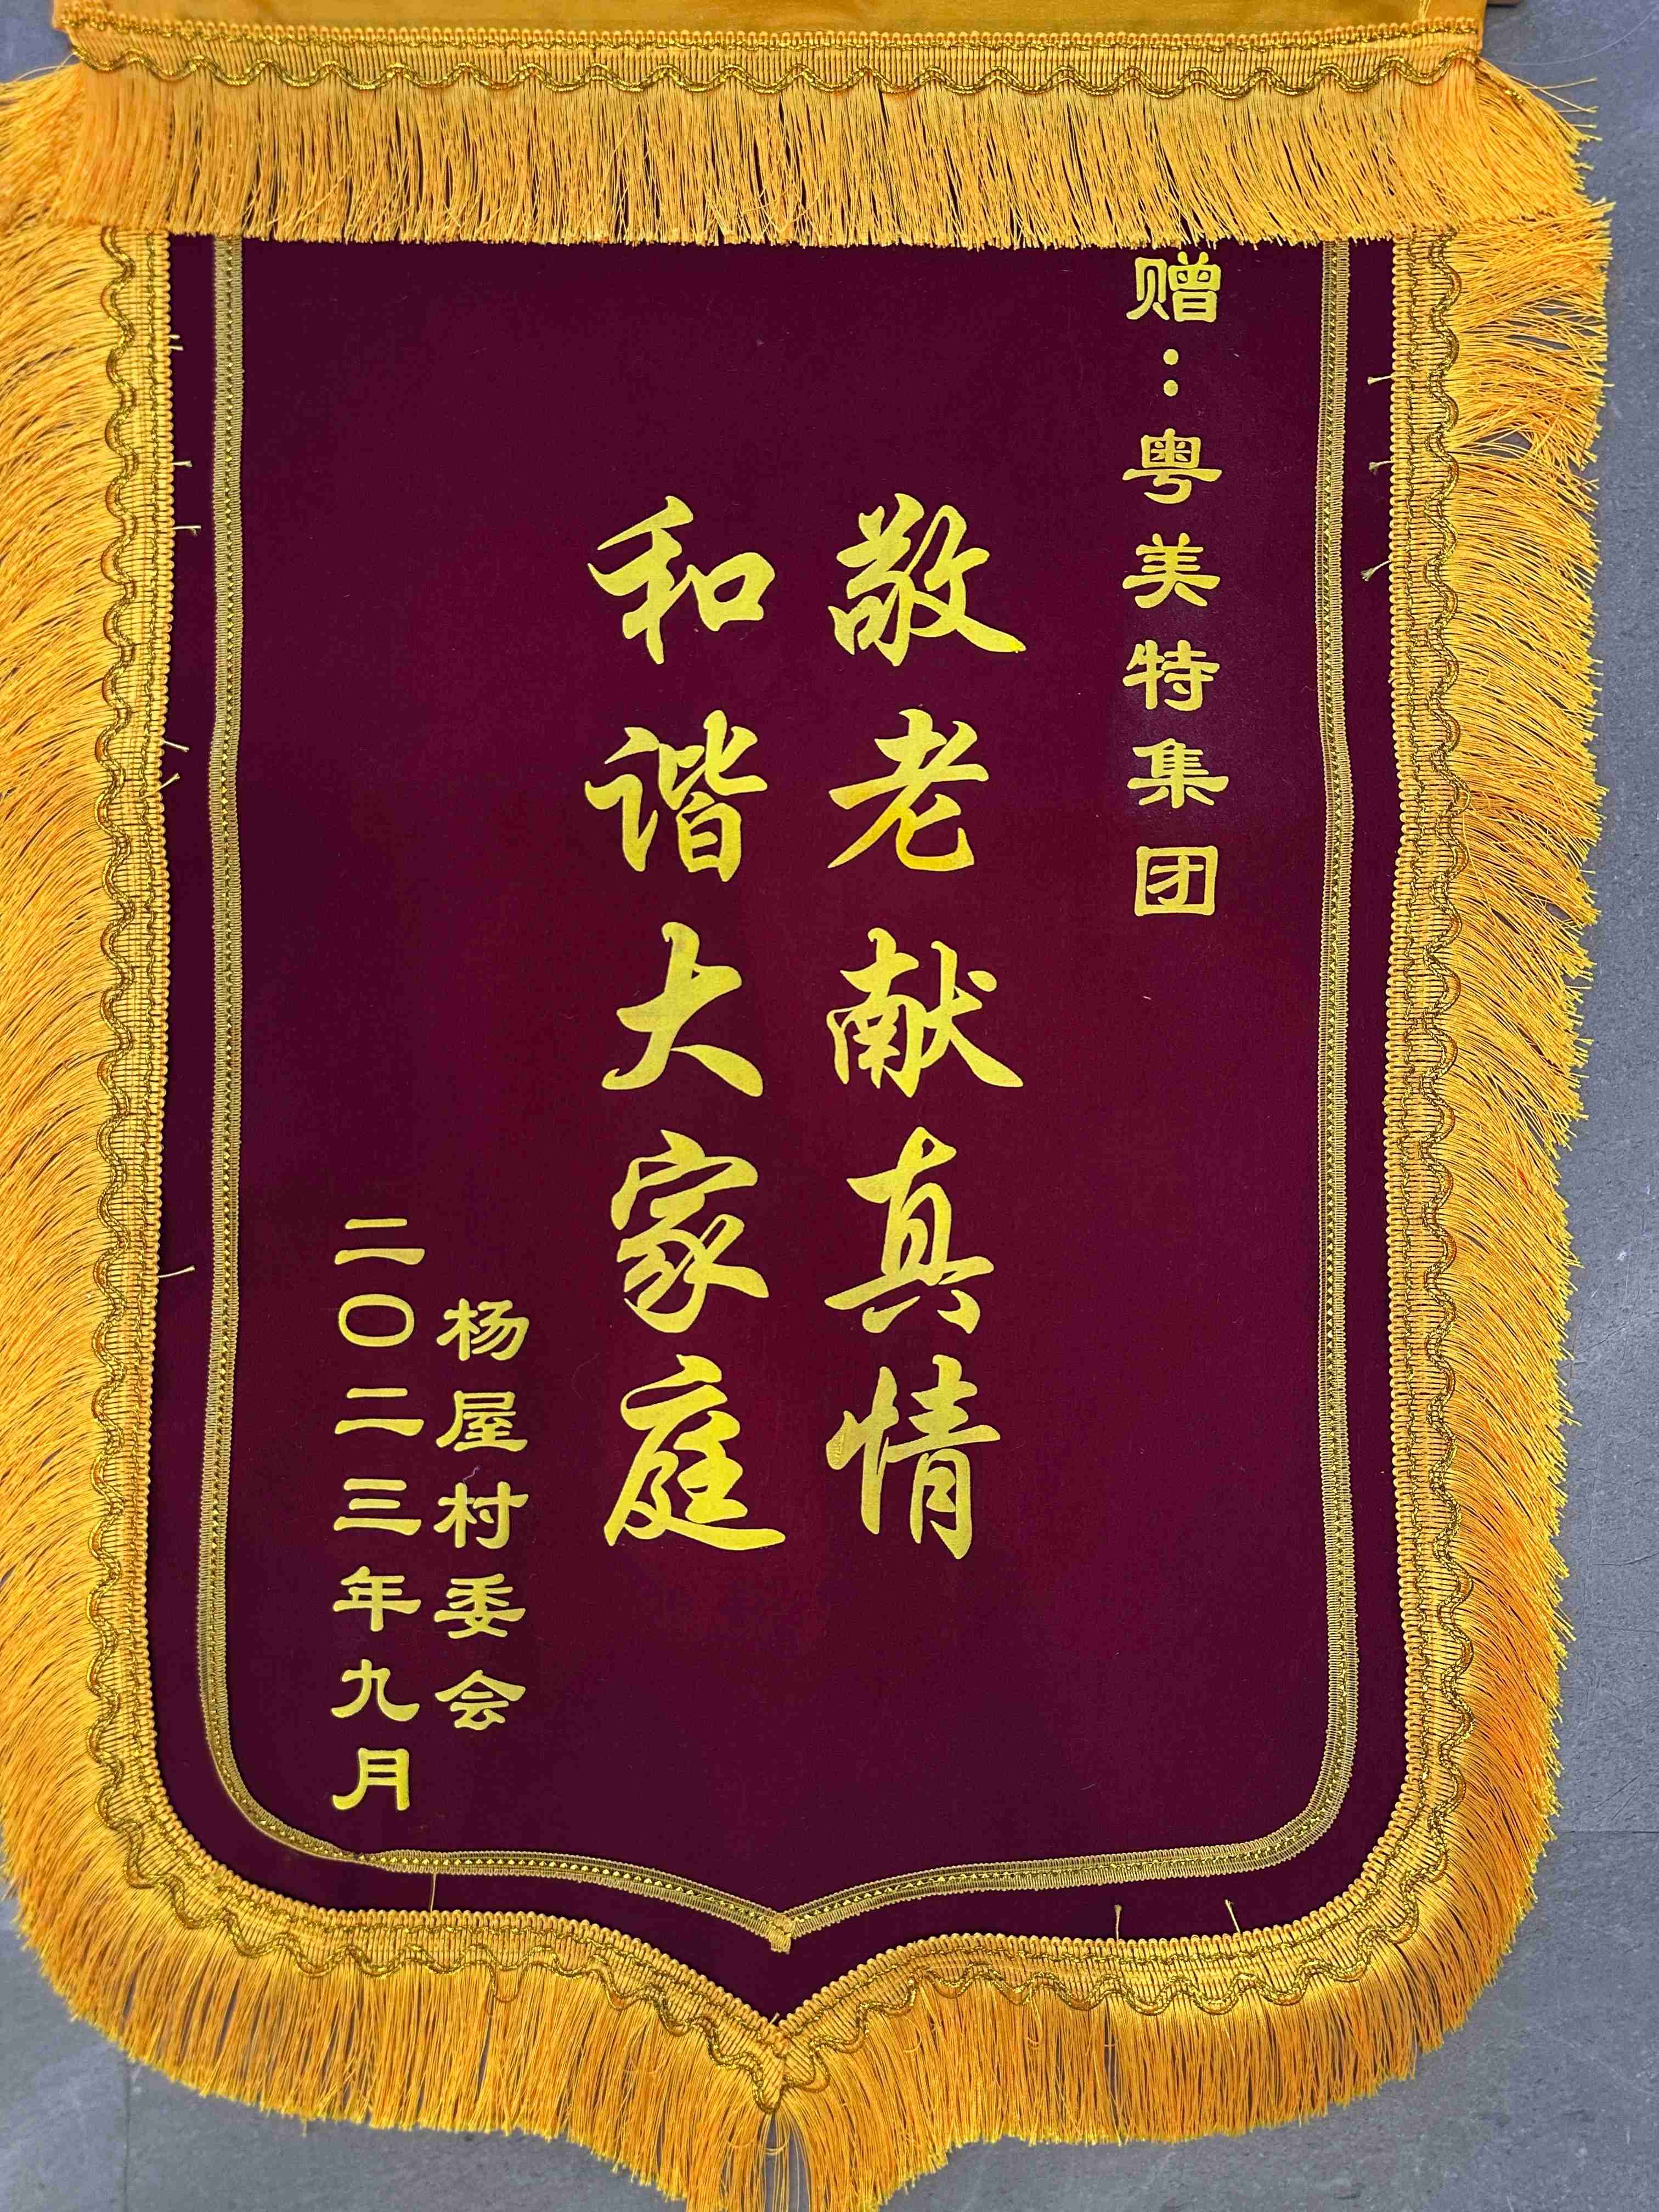 赠：粤美特集团
敬老献真情
和谐大家庭
杨屋村委会
二〇二三年九月